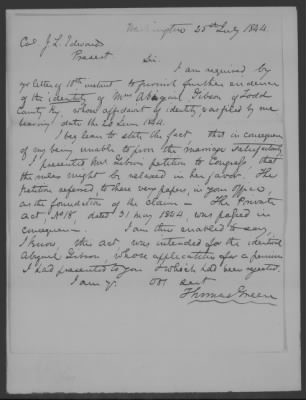 Washington 25th July 1844
Col J. L. Edwards
Present
Sir.
I am required by
yr letter of 10th instant to furnish further evidence
of the identity of Mrs Abigail Gibson of Todd
County Ky, whose affidavit of identity, was filed by me
bearing date the 22 June 1844.
I beg leave to state the fact that in consequence
of my being unable to prove the marriage satisfactorily
I presented Mrs Gibson petition to Congress, that
the rules might be relaxed in her favor. The
petition referred to these very papers, in your office,
as the foundation of the claim — The Private
Act, No 18, dated 31 May 1844, was passed in
consequence — I am thus enabled to say,
I know, this act, was intended for the identical
Abigail Gibson, whose application for a pension
I had presented to you & which had been rejected.
I am yr. Obt servt
Thomas Green